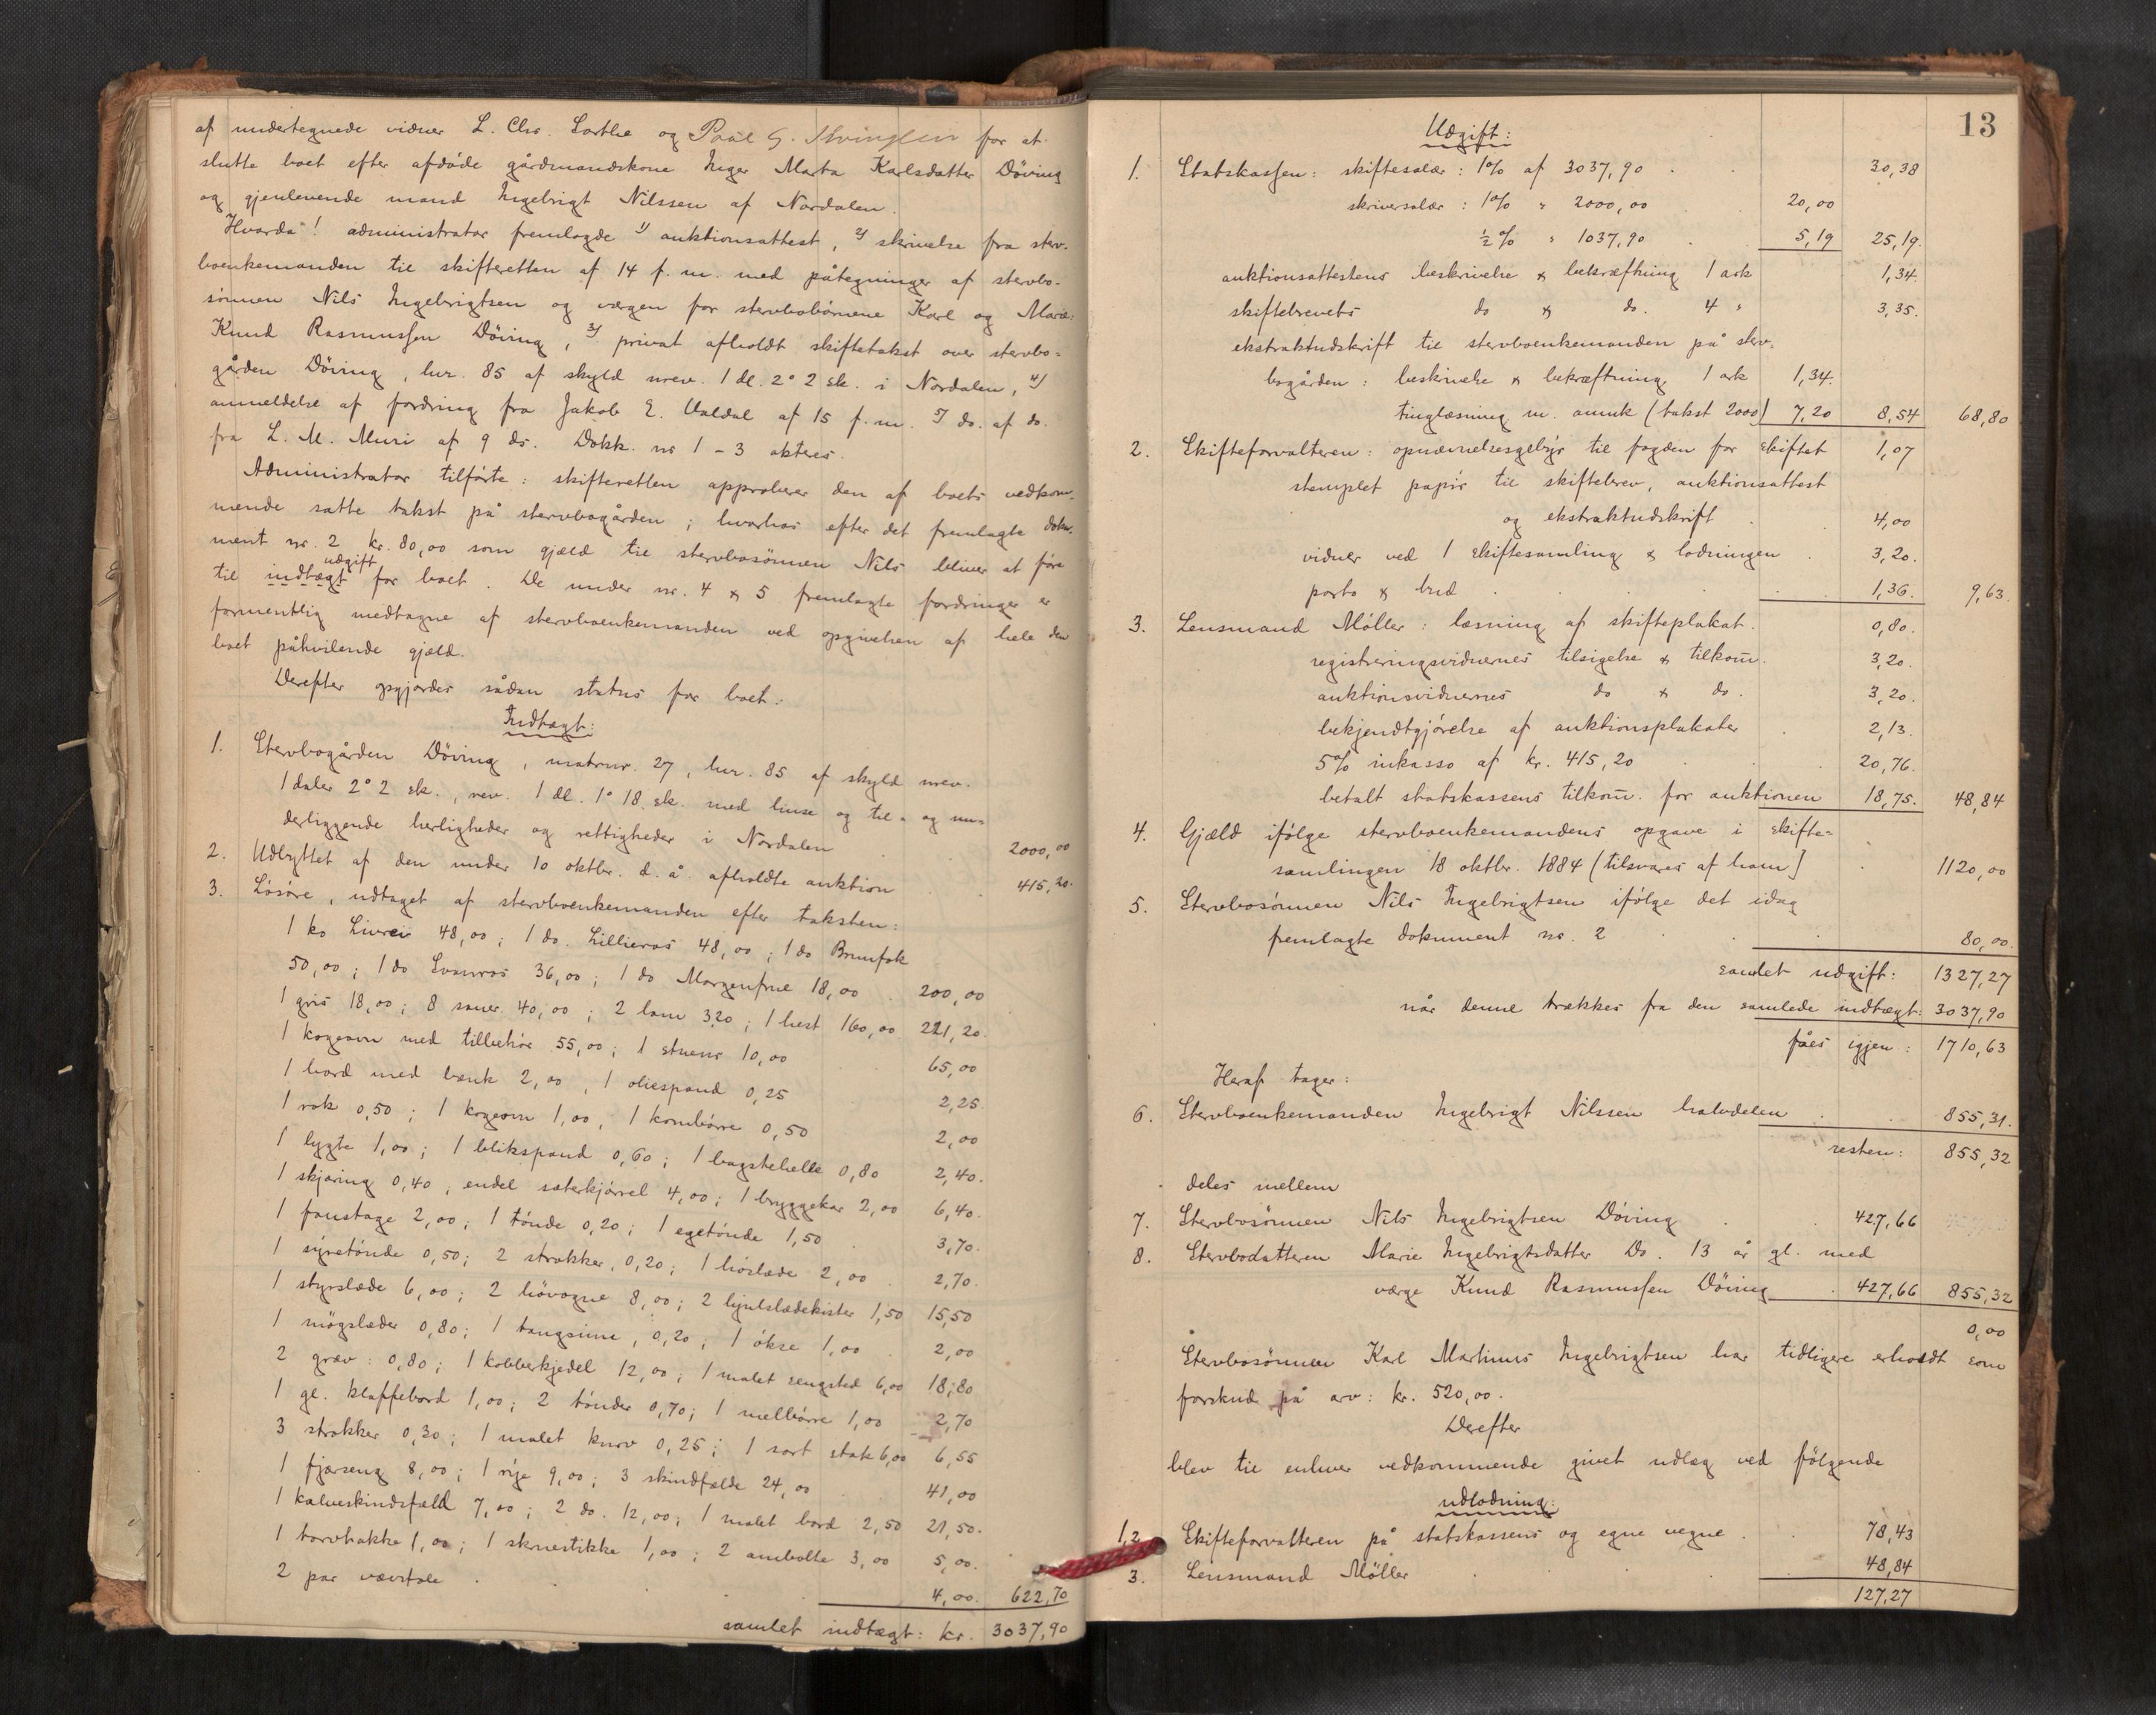 af undertegnede vidner L. Chr. Sorthe og Paul G. for at
slutte boet efter afdøde gårdmandskone Inger Marta Karlsdatter Döving
og gjenlevende mand Ingebrigt Nilssen af Nordalen.
Hvorda! administrator fremlagde 1) auktionsattest, 2) skrivelse fra sterv-
boenkemanden til skifteretten af 14 f. m. med påtegninger af stervbo-
sönnen Nils Ingebrigtsen og værgen for stervbobörnene Karl og Marie:
Knud Rasmussen Döving, 3) privat afholdt skiftetakst over stervbo-
gården Döving, lnr. 85 af skyld urev. 1 dl. 2° 2 sk. i Nordalen, 4)
anmeldelse af fordring fra Jakob E. Valdal af 15 f. m. 5) do. af do.
fra L. M. Muri af 9 ds. Dokk. nr 1 - 3 akteres.
Administrator tilförte: skifteretten approberer den af boets vedkom-
mende satte takst på stervbogården; hvorhos efter det fremlagte doku-
ment nr. 2 kr. 80,00 som gjæld til stervbosönnen Nils bliver at före
udgift
til indtægt for boet. De under nr. 4 & 5 fremlagte fordringer er
formentlig medtagne af stervboenkemanden ved opgivelsen af hele den
boet påhvilende gjæld.
Derefter opgjordes sådan status for boet:
Indtægt:
1. Stervbogården Döving, matrnr. 27, lnr. 85 af skyld urev.
1 daler 2° 2 sk., rev. 1 dl. 1° 18 sk. med huse og til- og un-
derliggende herligheder og rettigheder i Nordalen 2000,00
2. Udbyttet af den under 10 oktbr. d. å. afholdte auktion 415,20.
3. Lösöre, udtaget af stervboenkemanden efter taksten:
1 ko Livrei 48,00; 1 do. Lilleros 48,00; 1 do Brunfok
50,00; 1 do Svanros 36,00; 1 do Morgenfrue 18,00 200,00
1 gris 18,00; 8 sauer 40,00; 2 lam 3,20; 1 hest 160,00 221,20.
1 kogeovn med tilbehör 55,00; 1 stueur 10,00 65,00
1 bord med bænk 2,00, 1 oliespand 0,25 2,25.
1 rok 0,50; 1 kogeovn 1,00, 1 kornbörre 0,50 2,00
1 lygte 1,00; 1 blikspand 0,60; 1 bagstehelle 0,80 2,40.
1 skjæring 0,40; endel sæterkjörrel 4,00; 1 bryggekar 2,00 6,40.
1 faustage 2,00; 1 tönde 0,20; 1 egetönde 1,50 3,70.
1 syretönde 0,50; 2 strokker, 0,20; 1 höslæde 2,00 2,70.
1 styrslæde 6,00; 2 hövogne 8,00; 2 hjulslædekister 1,50 15,50
1 mögslæder 0,80; 1 tangsime, 0,20; 1 ökse 1,00 2,00
2 græv: 0,80; 1 kobberkjedel 12,00; 1 malet sengsted 6,00 18,80
1 gl. klaffebord 1,00; 2 tönder 0,70; 1 melbörre 1,00 2,70
3 strokker 0,30; 1 malet kurv 0,25; 1 sort stak 6,00 6,55
1 fjærseng 8,00; 1 rye 9,00; 3 skindfælde 24,00 41,00
1 kalveskindsfæld 7,00; 2 do. 12,00; 1 malet bord 2,50 21,50.
1 torvhakke 1,00; 1 skruestikke 1,00; 2 ambolte 3,00 5,00.
2 par vævstole 4,00. 622,70
samlet indtægt: kr. 3037,90
13
Udgift:
1. Statskassen: skiftesalær: 1% af 3037,90 30,38
skriversalær: 1% " 2000,00 20,00
½% " 1037,90 5,19 25,19.
auktionsattestens beskrivelse & bekræftning 1 ark 1,34.
skiftebrevets do & do. 4 " 3,35.
ekstraktudskrift til stervboenkemanden på sterv-
bogården: beskrivelse & bekræftning 1 ark 1,34.
tinglæsning m. anmk (takst 2000) 7,20 8,54 68,80
2. Skifteforvalteren: opnævnelsesgebyr til fogden for skiftet 1,07
stemplet papir til skiftebrev, auktionsattest
og ekstraktudskrift 4,00
vidner ved 1 skiftesamling & lodningen 3,20.
porto & bud 1,36. 9,63.
3. Lensmand Möller: læsning af skifteplakat. 0,80.
registreringsvidnernes tilsigelse & tilkom. 3,20.
auktionsvidnernes do & do. 3,20.
bekjendtgjörelse af auktionsplakater 2,13.
5% inkasso af kr. 415,20 20,76.
betalt statskassens tilkom. for auktionen 18,75. 48,84
4. Gjæld ifölge stervboenkemandens opgave i skifte-
samlingen 18 oktbr. 1884 (tilsvares af ham) 1120,00
5. Stervbosönnen Nils Ingebrigtsen ifölge det idag
fremlagte dokument nr. 2 80,00.
samlet udgift: 1327,27
når denne trækkes fra den samlede indtægt: 3037,90
fåes igjen: 1710,63
Heraf tager:
6. Stervboenkemanden Ingebrigt Nilssen halvdelen 855,31.
resten: 855,32
deles mellem
7. Stervbosönnen Nils Ingebrigtsen Döving 427,66
8. Stervbodatteren Marie Ingebrigtsdatter Do. 13 år gl. med
værge Knud Rasmussen Döving 427,66 855,32
0,00
Stervbosönnen Karl Martinus Ingebrigtsen har tidligere erholdt som
forskud på arv: kr. 520,00.
Derefter
blev til enhver vedkommende givet udlæg ved fölgende
udlodning:
1,2 Skifteforvalteren på statskassens og egne vegne 78,43
3. Lensmand Möller 48,84
127,27